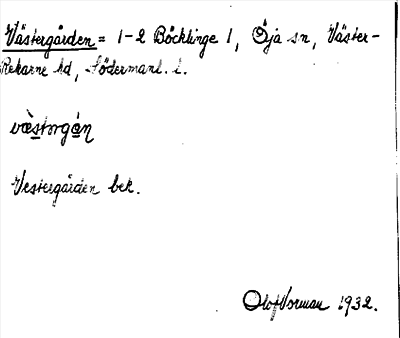 Västergården = 1-2 Böcklinge 1, Öja sn, Väster-
Rekarne hd, Söderman l. l.
västərgán
Vestergården bek.
Olof Vorman 1932.